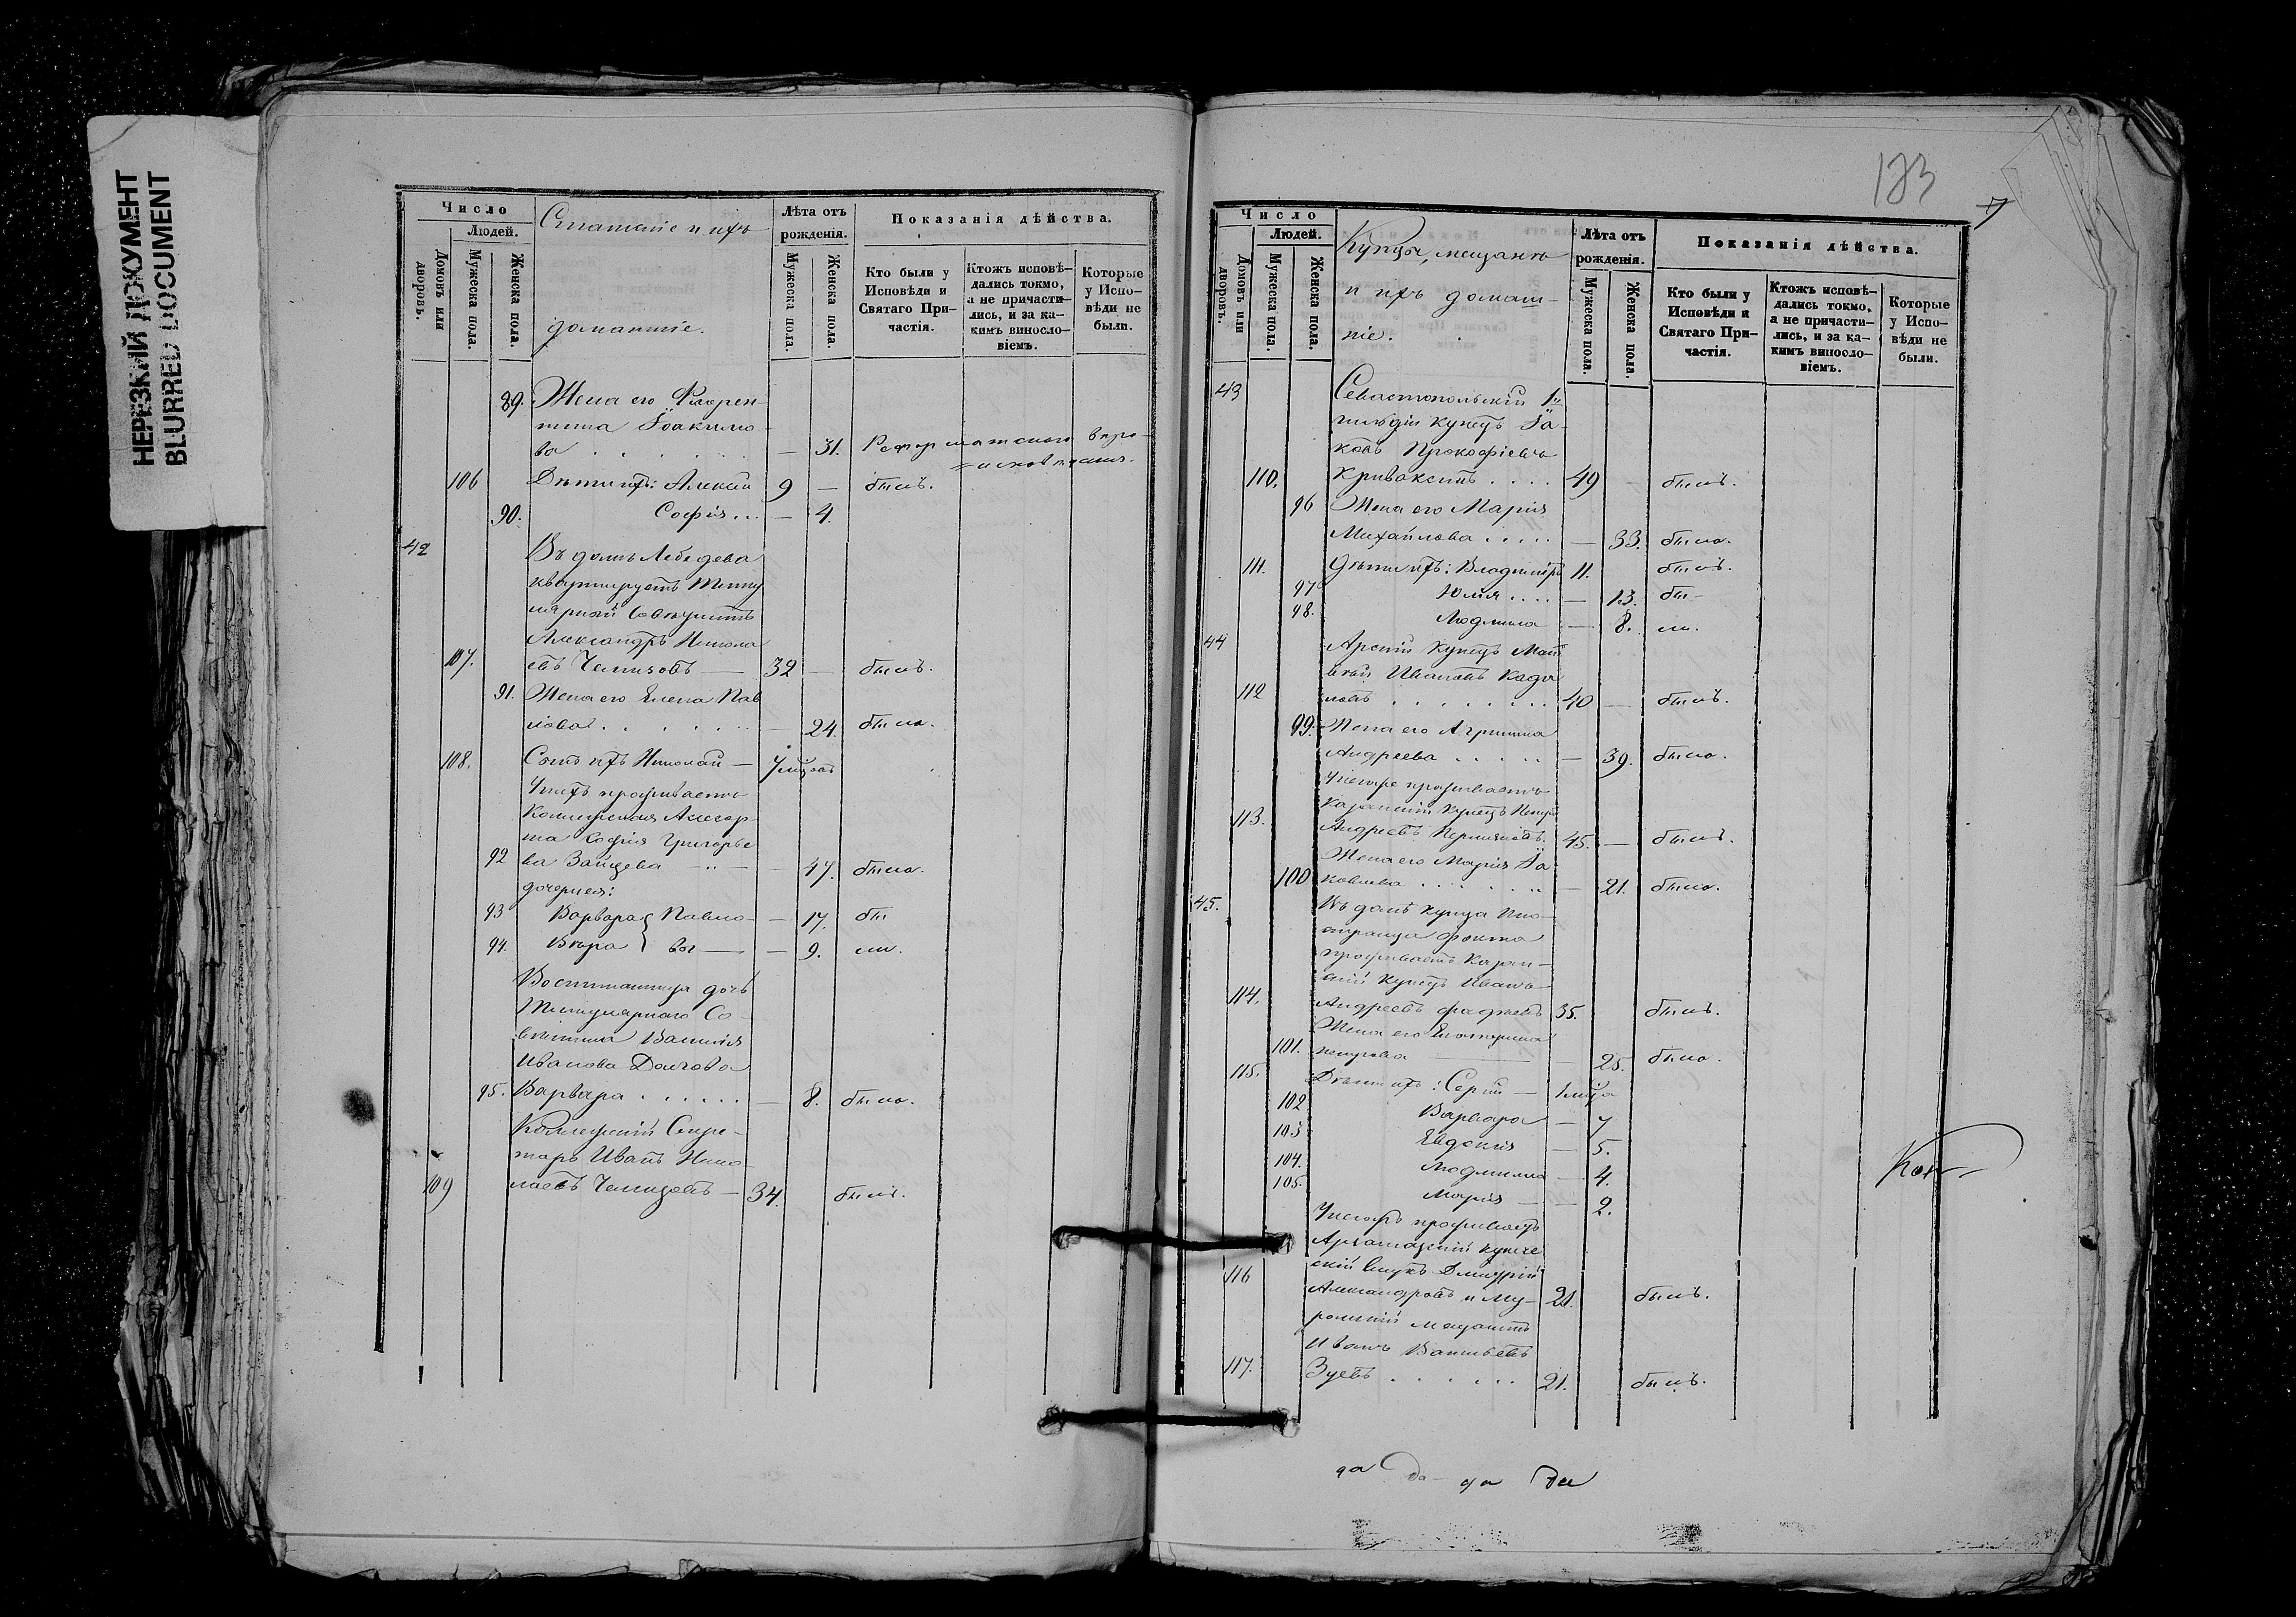 НЕРЕЗКИЙ ДОКУМЕНТ
BLURRED DOCUMENT
Число
Людей.
Домовъ или дворовъ.
Мужеска пола.
Женска пола.
Статскіе и ихъ
домашніе.
Лѣта отъ рожденія.
Мужеска пола.
Женска пола.
Показанія дѣйства.
Кто были у Исповѣди и Святаго Причастія.
Ктожъ исповѣдались токмо, а не причастились, и за какимъ винословіемъ.
Которые у Исповѣди не были.
89. Жена его
Іоакимо-
ва — 31. Реформатскаго вѣро-
исповѣданія.
106 Дѣти ихъ: Алексѣй 9 — былъ.
90. Софія — 4.
42 Въ домѣ Лебедева
квартируетъ Титу
лярный Совѣтникъ
Александръ Никола
107. евъ — 32 — былъ.
91. Жена его Елена Пав
лова — 24. была.
108. Сынъ ихъ Николай —
У нихъ проживаетъ
Коллежская Асесор-
ша Софія Григорье
92 ва Зайцева — 47. была.
дочери ея:
93 Варвара Павло- — 17. бы
94. Вѣра вы — 9. ли.
Воспитанница дочь
Титулярнаго Со-
вѣтника Василія
Иванова Долгова
95. Варвара — 8. была.
Коллежскій Секре-
тарь Иванъ Нико-
109 лаевъ — 34. былъ.
183
7
Число
Людей.
Домовъ или дворовъ.
Мужеска пола.
Женска пола.
Купцы, мещане
и ихъ домаш-
ніе.
Лѣта отъ рожденія.
Мужеска пола.
Женска пола.
Показанія дѣйства.
Кто были у Исповѣди и Святаго Причастія.
Ктожъ исповѣдались токмо, а не причастились, и за какимъ винословіемъ.
Которые у Исповѣди не были.
43 Севастопольскій 1й
гильдіи купецъ Іа-
ковъ Прокофіевъ
110. 49 — былъ.
96 Жена его Марія
Михайлова — 33. была.
111. Дѣти ихъ: Владиміръ 11. былъ.
97 Юлія — 13. бы-
98. Людмила — 8. ли.
44 купецъ Мат
вѣй Ивановъ
112 40 — былъ.
99. Жена его Агрипина
Андреева — 39. была.
проживаетъ
Казанскій купецъ Петръ
113. Андреевъ 45. — былъ.
Жена его Марія Іа
100 ковлева — 21. была.
45. Въ домѣ купца Ино-
странца
проживаетъ Казан-
скій купецъ Иванъ
114. Андреевъ 35. былъ.
Жена его Екатерина
101. Петрова — 25. была.
115. Дѣти ихъ: Сергій —
102 Варвара — 7
103 Евдокія — 5.
104. Людмила — 4.
105. Марія — 2.
проживаетъ
Арзамазскій купече
скій внукъ Дмитрій
116 Александровъ и Му- 21. былъ.
ромскій мещанинъ
Иванъ Васильевъ
117. Зуевъ 21. былъ.
да да да да